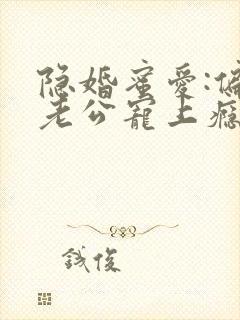 隐婚蜜爱:偏
老公宠上瘾
钱俊